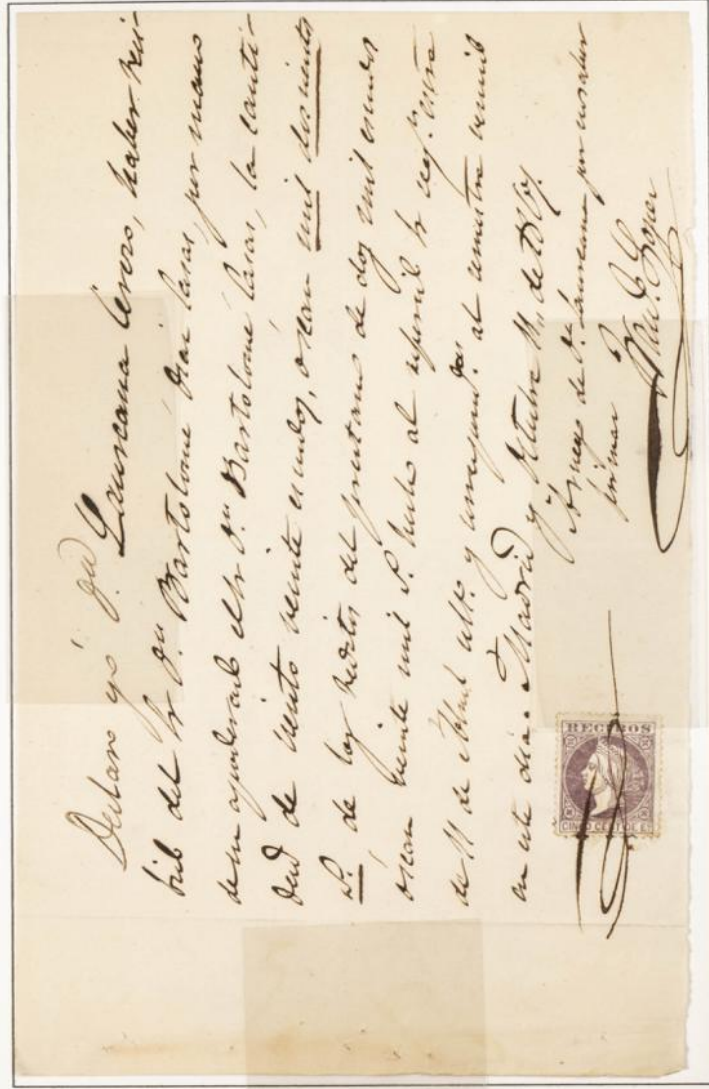 Declaro yo Dª Laureana Cerezo, haber reci-
bido del Sr Dn Bartolomé Diaz Casas por mano
de su apoderado el Sr Dn Bartolomé Casas, la canti-
dad de ciento veinte escudos, o sean mil doscientos
r.s de los reditos del prestamo de dos mil escudos
o sean veinte mil r.s hecho al
de 11 de Abril ult.º y al semestre
en este dia. Madrid y Octubre 11 de 1869.
A ruego de Dª Laureana por no saber
firmar
RECIBOS
CINCO CENT. DE Eº